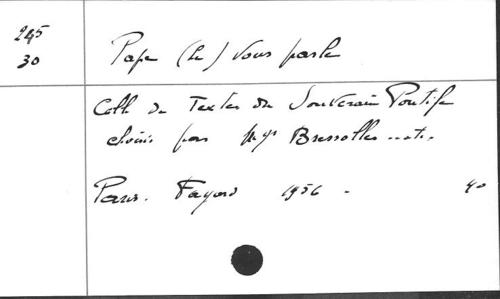 245
30
Pape (Le) Vous parle
Coll de Textes du Souverain Pontife
choisis par Mgr Bressolles
Paris. Fayard 1956 -